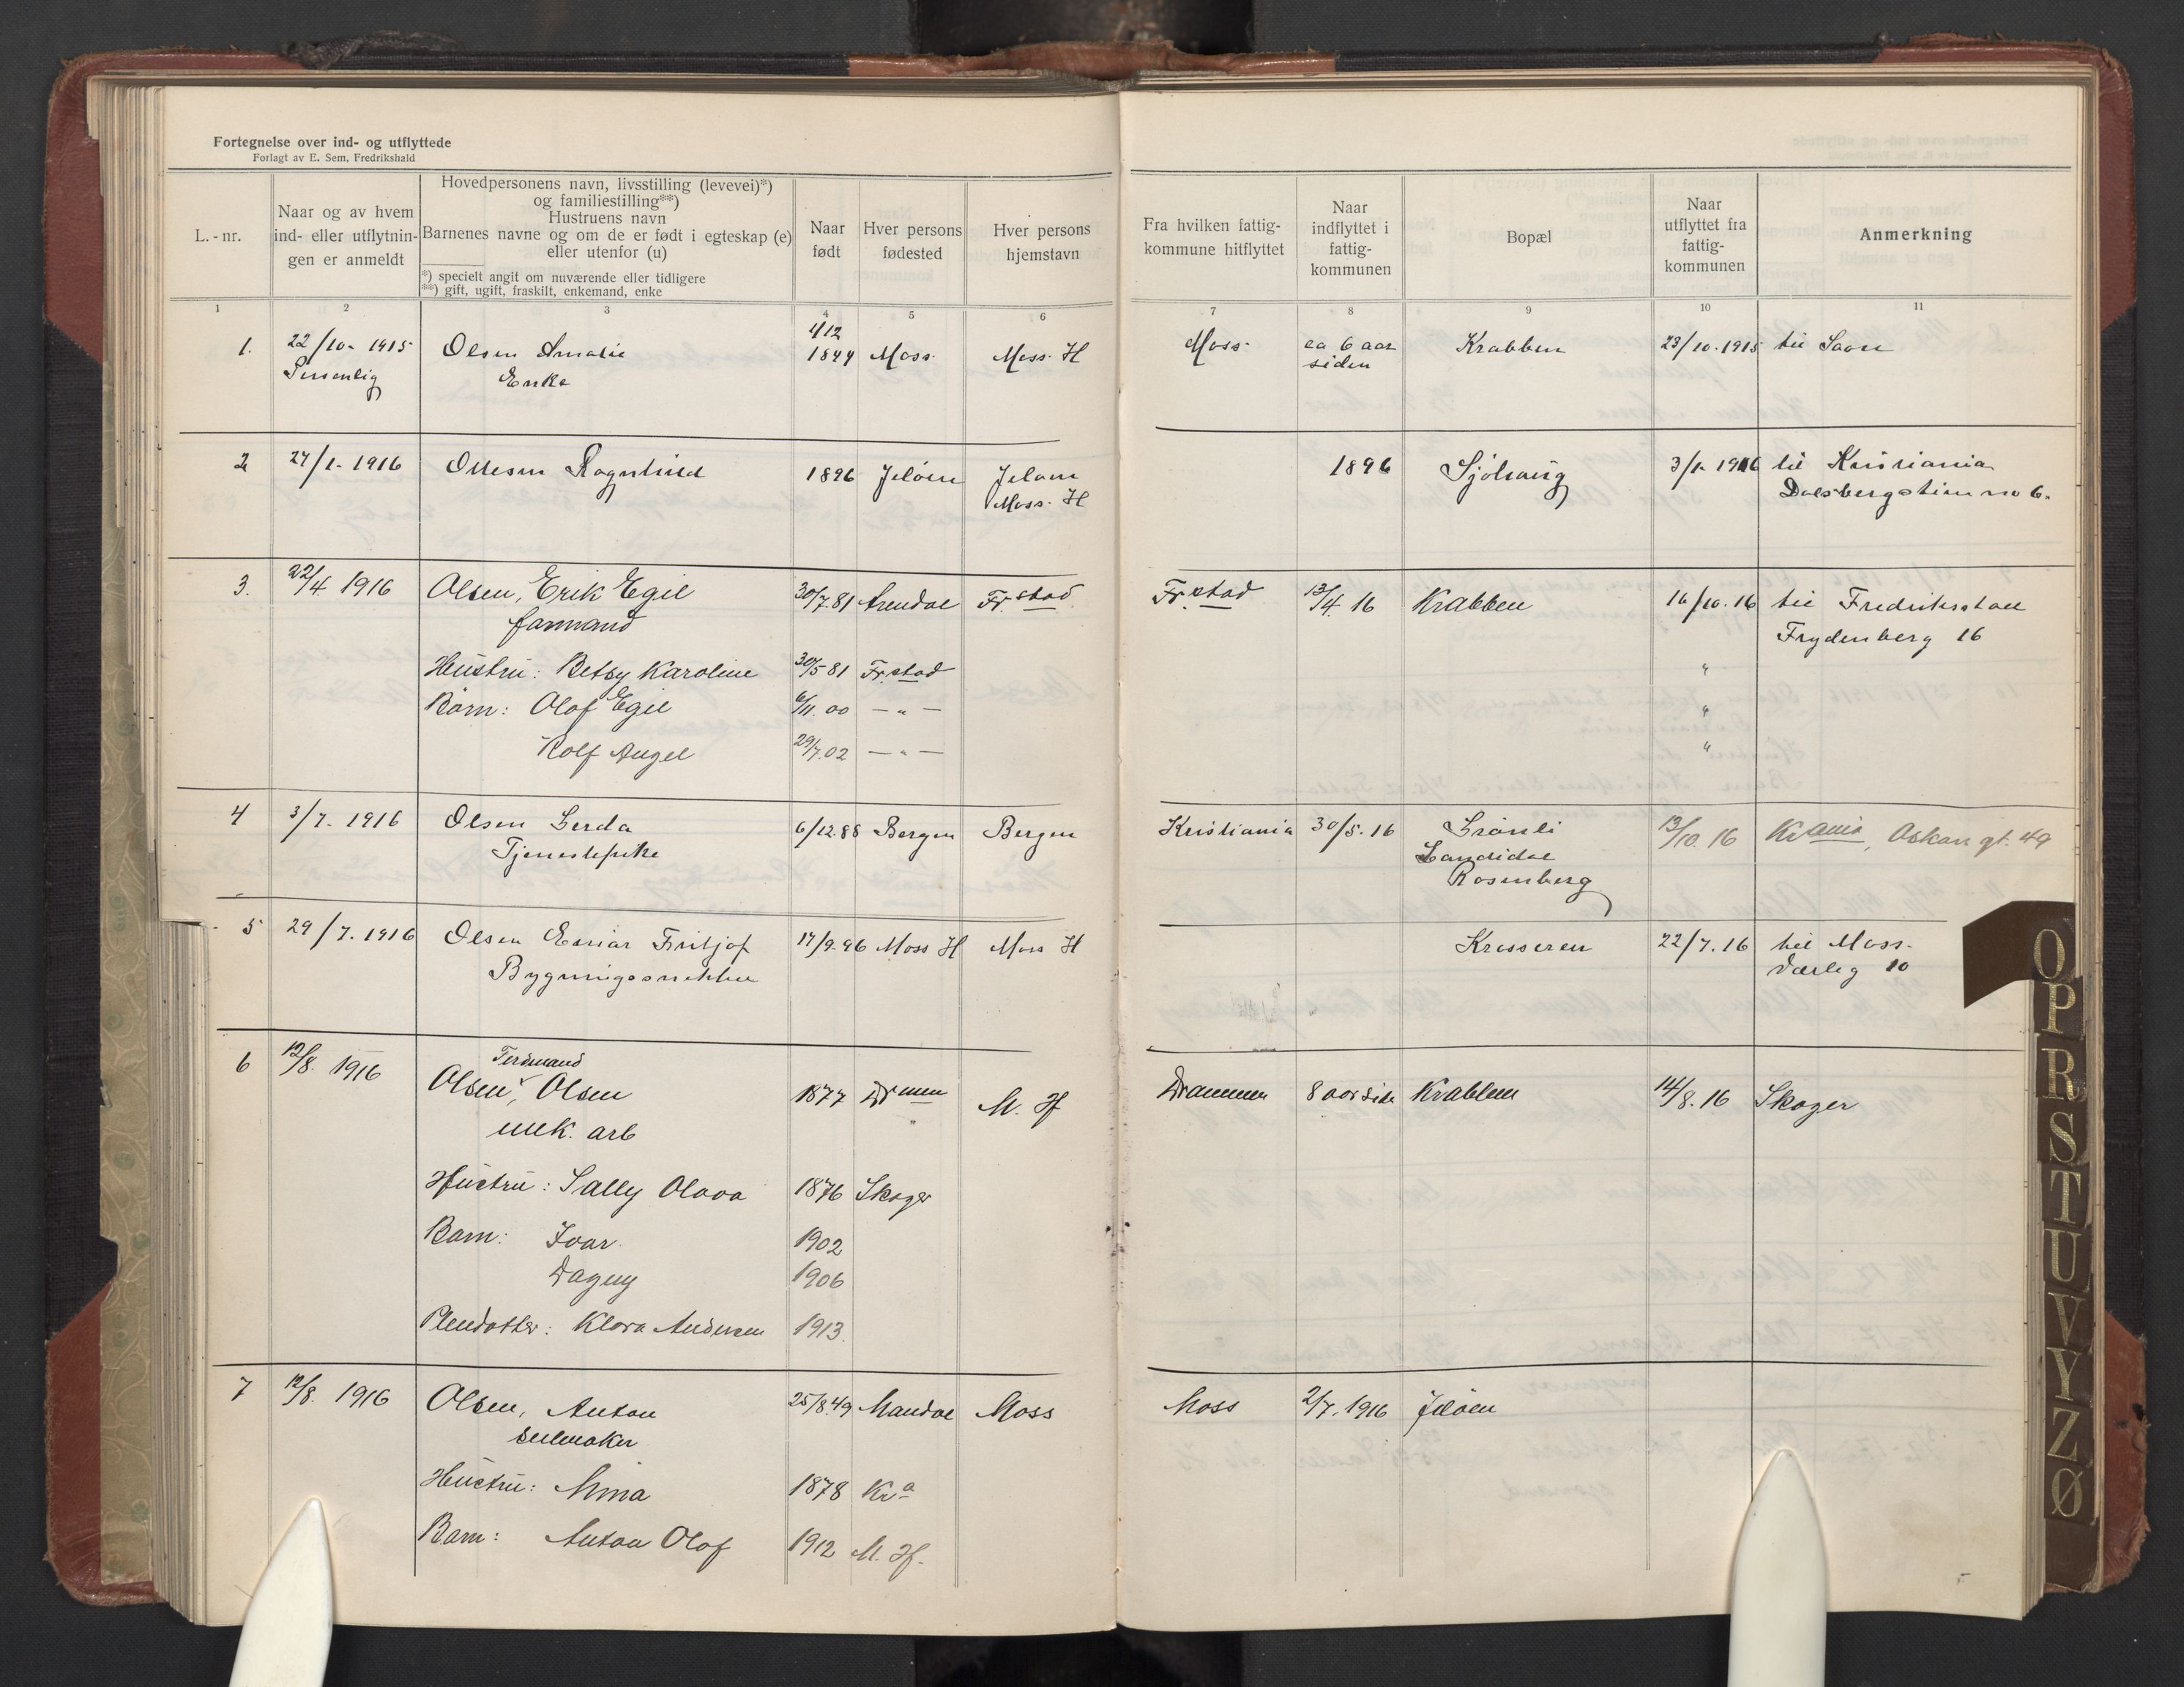 Fortegnelse over ind- og utflyttede
Forlagt av E. Sem, Fredrikshald
L.-nr.
Naar og av hvem
ind- eller utflytnin-
gen er anmeldt
Hovedpersonens navn, livsstilling (levevei)*)
og familiestilling**)
Hustruens navn
Barnenes navne og om de er født i egteskap (e)
eller utenfor (u)
*) specielt angit om nuværende eller tidligere
**) gift, ugift, fraskilt, enkemand, enke
Naar
født
Hver persons
fødested
Hver persons
hjemstavn
Fra hvilken fattig-
kommune hitflyttet
Naar
indflyttet i
fattig-
kommunen
Bopæl
Naar
utflyttet fra
fattig-
kommunen
Anmerkning
1 2 3 4 5 6 7 8 9 10 11
4/12
1. 22/10- 1915 Olsen Amalie 1844 Moss Moss H Moss ca 6 aar Krabben 23/10.1915 til Saon
Personlig Enke siden
2 27/1- 1916 Ottesen Ragnhild 1896 Jeløen Jeløen 1896 Sjöhaug 3/1-1916 til Kristiania
Moss H Dalsbergstien no 6.
3. 22/4 1916 Olsen, Erik Egil 30/7.81 Arendal Fr.stad Fr.stad 13/4 16 Krabben 16/10.16 til Fredrikstad
formand Frydenberg 16
Hustru: Betsy Karoline 30/5 81 Fr.stad "
Børn: Olof Egil 6/11.00 — " — "
Rolf Angel 29/7.02 — " — "
4 3/7- 1916 Olsen Gerda 6/12.88 Bergen Bergen Kristiania 30/5.16 Grönli 13/10.16 Kr.ania, Oskars gt. 49
Tjenestepike
Rosenberg
5 29/7.1916 Olsen Einar Fritjof 17/9.96 Moss H Moss H Krosseren 22/7.16 til Moss
Bygningssnekker Værlegt 10
6 12/8. 1916 Ferdinand
Olsen, Olsen 1877 Dr.men M. H Drammen 8 aar siden Krabben 14/8.16 Skoger
mek. arb "
Hustru: Sally Olava 1876 Skoger
Barn: Ivar 1902
Dagny 1906
Pleiedatter: Klara Andersen 1913.
7 12/8. 1916 Olsen, Anton 25/8.49 Mandal Moss Moss 2/7.1916 Jeløen
seilmaker
Hustru: Mina 1878 Kr.a
Barn: Anton Olof 1912 M. H.
O
P
R
S
T
U
V
Y
Z
Ø